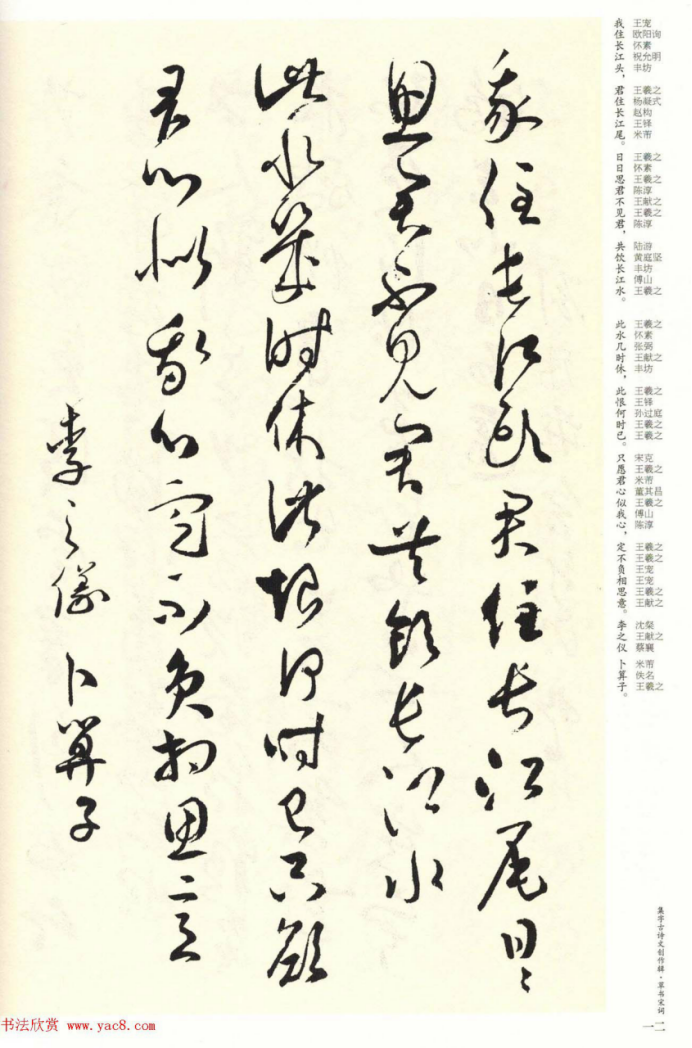 我住長江頭君住長江尾日〻
思君不見君共飲長江水
此水幾時休此恨何時已只願
君心似我心定不負相思意
李之儀 卜算子
我住长江头，君住长江尾。日日思君不见君，共饮长江水。此水几时休，此恨何时已。只愿君心似我心，定不负相思意。李之仪 卜算子。
王宠
欧阳询
怀素
祝允明
丰坊
王羲之
杨凝式
赵构
王铎
米芾
王羲之
怀素
王羲之
陈淳
王献之
王羲之
陈淳
陆游
黄庭坚
丰坊
傅山
王羲之
王羲之
怀素
张弼
王献之
丰坊
王羲之
王铎
孙过庭
王羲之
王羲之
宋克
王羲之
米芾
董其昌
王羲之
傅山
陈淳
王羲之
王羲之
王宠
王宠
王羲之
王献之
沈粲
王献之
蔡襄
米芾
佚名
王羲之
集字古诗文创作辑·草书宋词
一二
书法欣赏 www.yac8.com